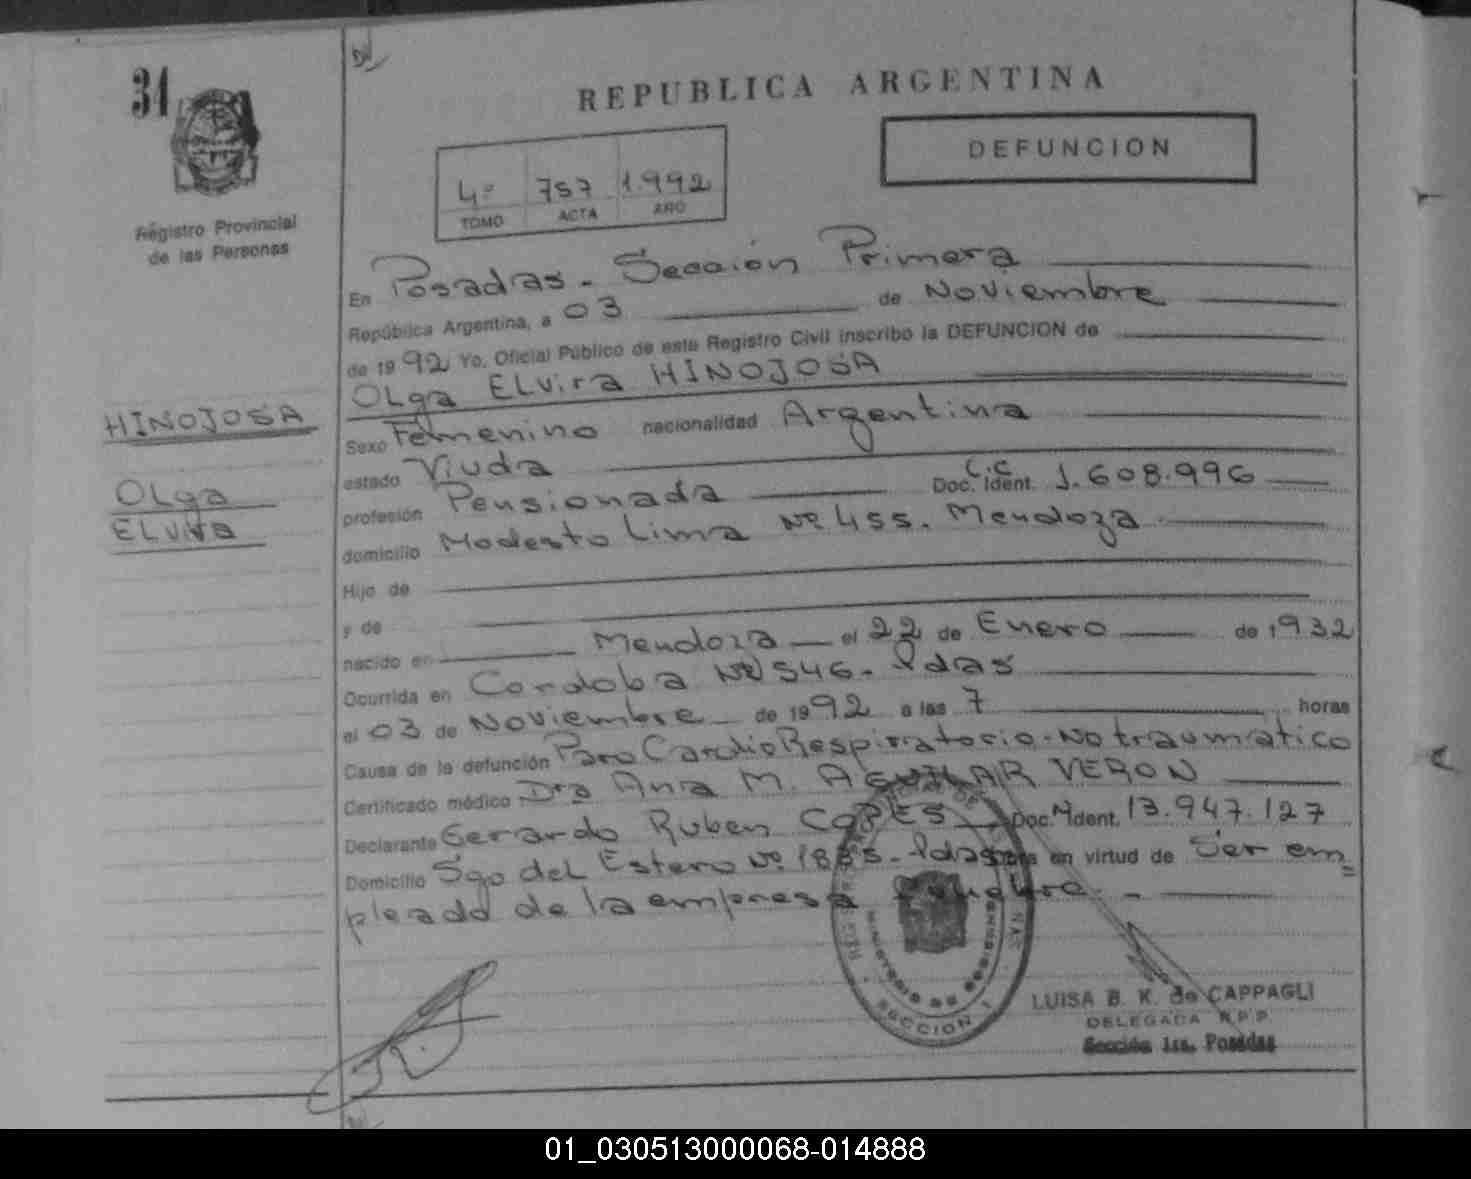 31
REPUBLICA ARGENTINA
DEFUNCION
4º 757 1.992
TOMO ACTA AÑO
Registro Provincial
de las Personas
En Posadas - Sección Primera
República Argentina, a 03 de Noviembre
de 1992 Yo, Oficial Público de este Registro Civil inscribo la DEFUNCION de
OLga ELvira HINOJOSA
HINOJOSA
OLga
ELvira
Sexo Femenino nacionalidad Argentina
estado Viuda
profesión Pensionada Doc. Ident. C.C 1.608.996
domicilio Modesto Lima Nº 455. Mendoza
Hijo de
y de
nacido en Mendoza el 22 de Enero de 1932
Ocurrida en Cordoba Nº 546. Pdas
el 03 de Noviembre de 1992 a las 7 horas
Causa de la defunción Paro CardioRespiratorio-No traumatico
Certificado médico Dra Ana M. AGUILAR VERON
Declarante Gerardo Ruben COPES Doc. Ident. 13.947.127
Domicilio Sgo del Estero Nº 1885. Pdas en virtud de Ser em=
pleado de la empresa Funebre.-
SECCION 1
LUISA B. K. de CAPPAGLI
DELEGADA R.P.P.
Sección 1ra. Posadas
01_030513000068-014888